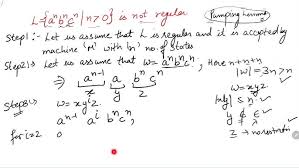 L={aⁿbⁿcⁿ | n≥0} is not regular
Pumping Lemma
Step1:- Let us assume that L is regular and it is accepted by
machine 'M' with 'n' no. of States
Step2:- Let us assume that w=aⁿbⁿcⁿ, Here n+n+n
|w|=3n>n
⇒ aⁿ⁻¹ a bⁿcⁿ w=xyz
x y z
Step3 w=xyz
aⁿ⁻¹ aⁱ bⁿcⁿ,
|xy| ≤ n
y ≠ ε
z → no restriction
for i=2